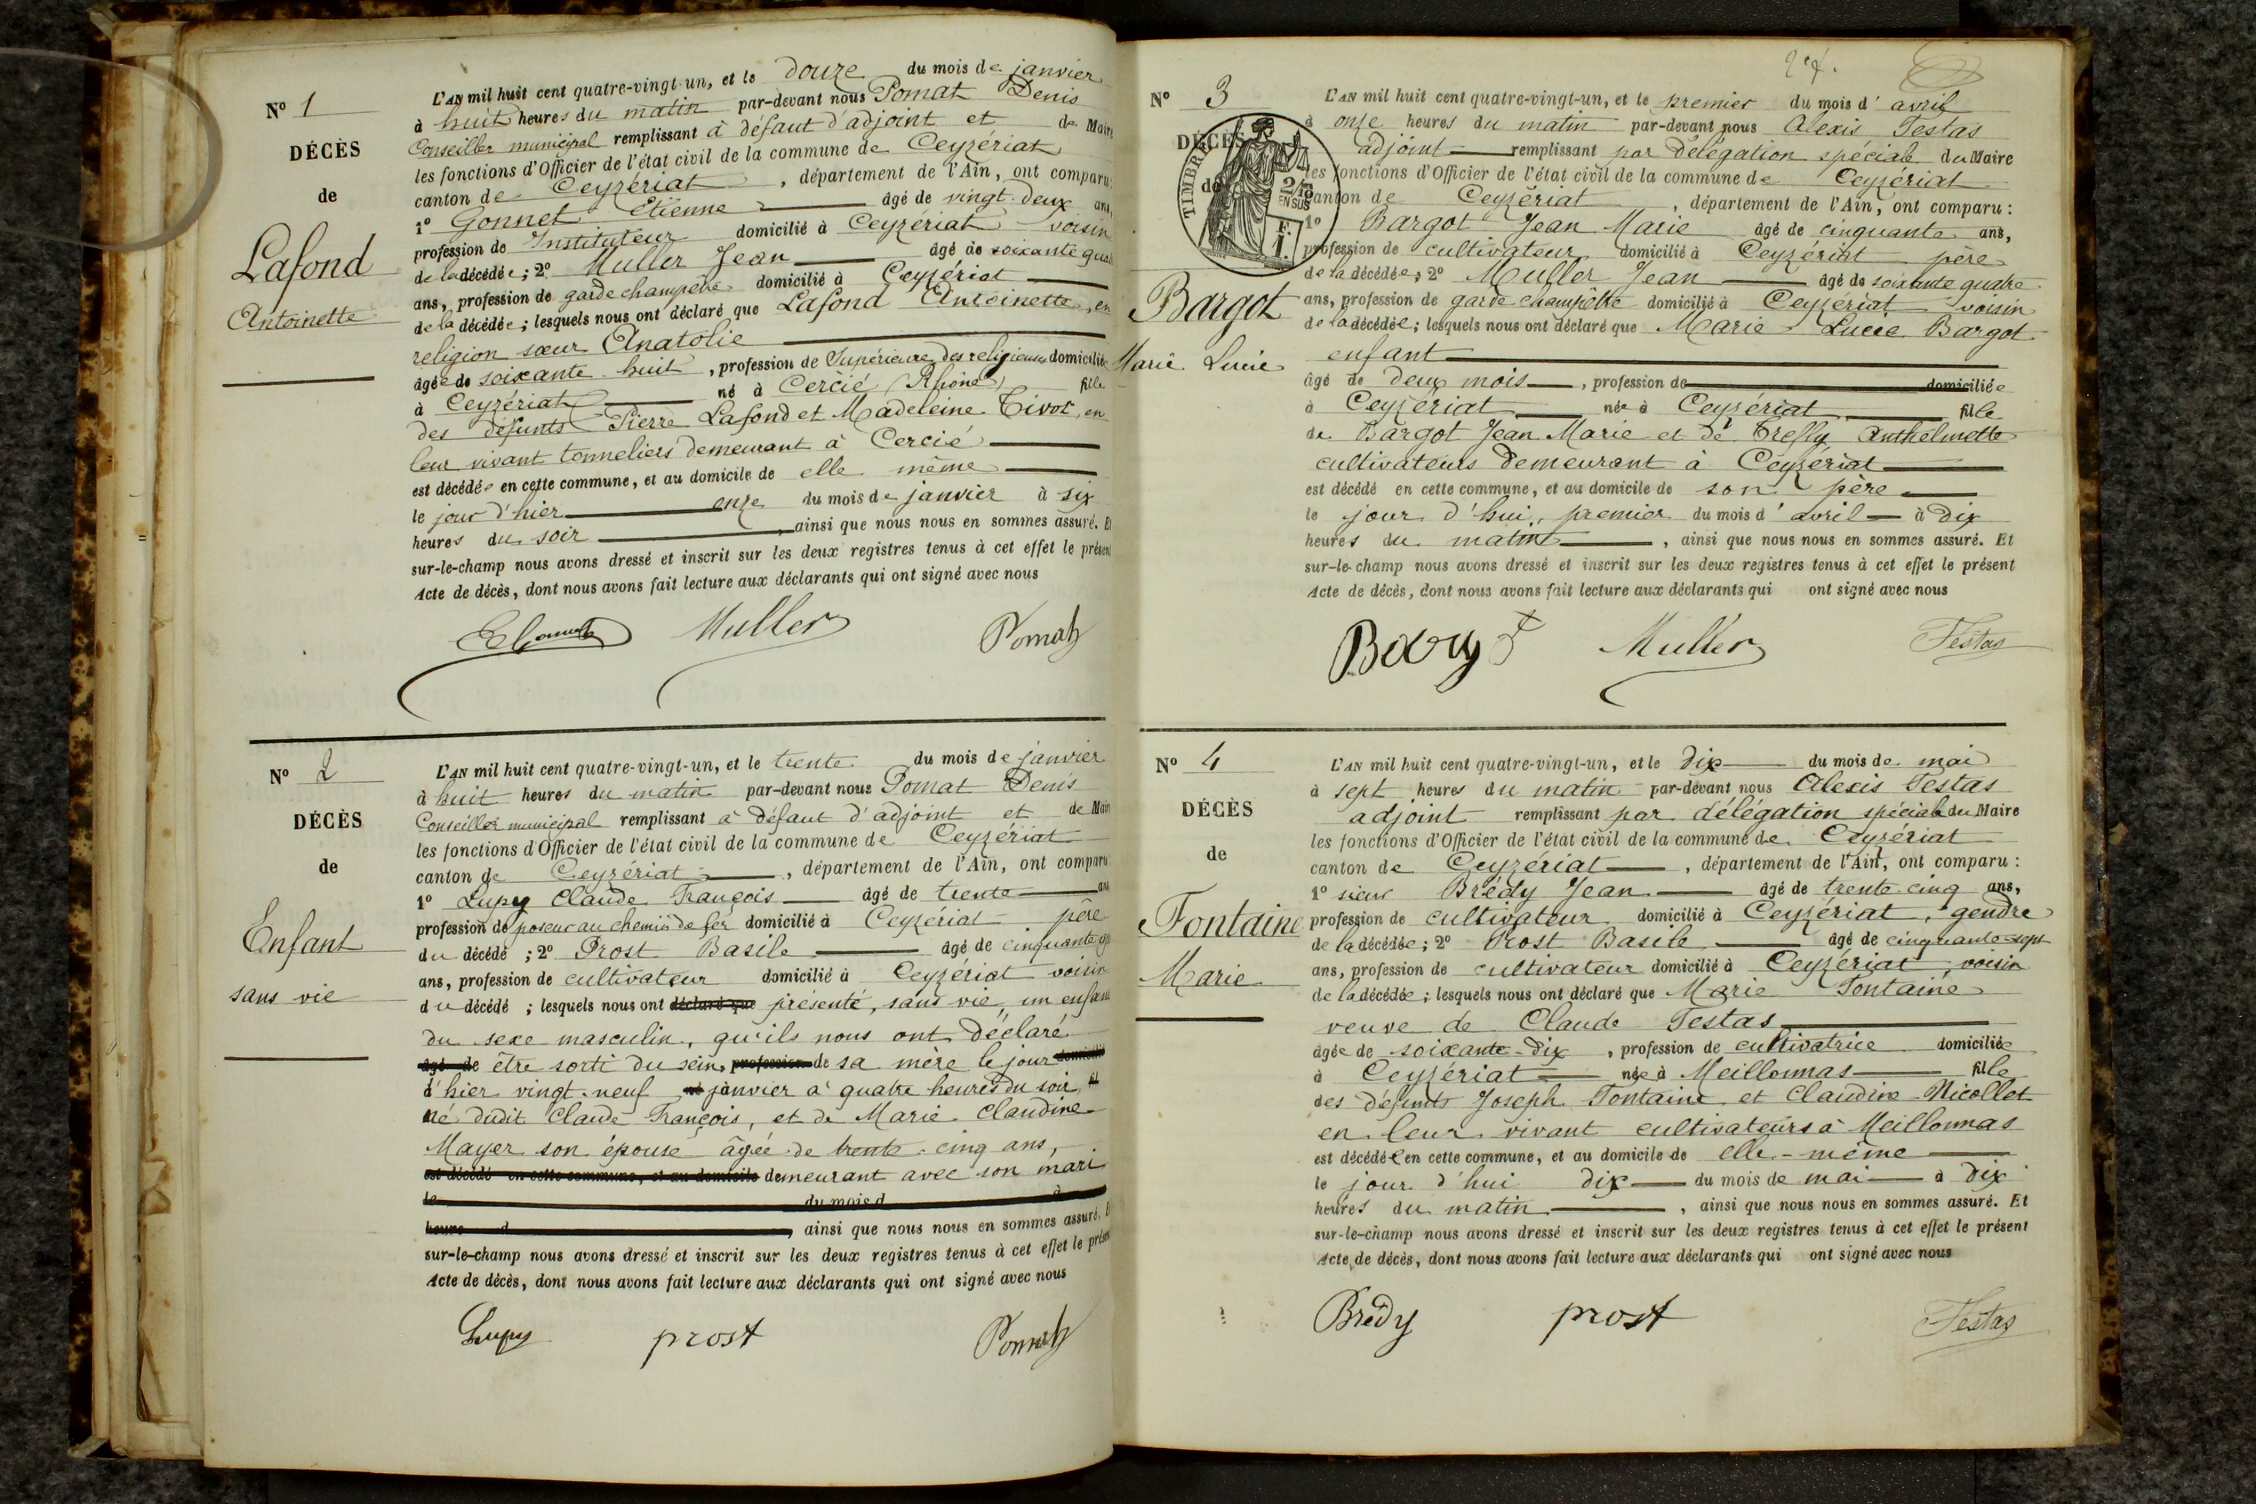 N° 1
DÉCÈS
de
Lafond
Antoinette
L'AN mil huit cent quatre-vingt-un, et le douze du mois de janvier
à huit heures du matin par-devant nous Pomat Denis
Conseiller municipal remplissant à défaut d'adjoint et de Maire
les fonctions d'Officier de l'état civil de la commune de Ceyzériat
canton de Ceyzériat, département de l'Ain, ont comparu:
1° Gonnet Etienne âgé de vingt-deux ans,
profession de Instituteur domicilié à Ceyzériat voisin
de la décédée; 2° Muller Jean âgé de soixante qua
ans, profession de garde champêtre domicilié à Ceyzériat
de la décédée; lesquels nous ont déclaré que Lafond Antoinette, en
religion sœur Anatolie
âgée de soixante huit, profession de Supérieure des religieuses domiciliée
à Ceyzériat né à Cercié (Rhône) fille
des défunts Pierre Lafond et Madeleine Tivot, en
leur vivant tonneliers demeurant à Cercié
est décédée en cette commune, et au domicile de elle même
le jour d'hier onze du mois de janvier à six
heures du soir, ainsi que nous nous en sommes assuré. Et
sur-le-champ nous avons dressé et inscrit sur les deux registres tenus à cet effet le présent
Acte de décès, dont nous avons fait lecture aux déclarants qui ont signé avec nous
Muller Pomat
N° 2
DÉCÈS
de
Enfant
sans vie
L'AN mil huit cent quatre-vingt-un, et le trente du mois de janvier
à huit heures du matin par-devant nous Pomat Denis
Conseiller municipal remplissant à défaut d'adjoint et de Maire
les fonctions d'Officier de l'état civil de la commune de Ceyzériat
canton de Ceyzériat, département de l'Ain, ont comparu
1° Lupy Claude François âgé de trente ans
profession de poseur au chemin de fer domicilié à Ceyzériat père
du décédé; 2° Prost Basile âgé de cinquante sept
ans, profession de cultivateur domicilié à Ceyzériat voisin
du décédé; lesquels nous ont déclaré que présenté, sans vie, un enfant
du sexe masculin, qu'ils nous ont déclaré
âgé de être sorti du sein, profession de sa mère le jour domicilié
d'hier vingt-neuf né janvier à quatre heures du soir fil
né dudit Claude François, et de Marie Claudine
Mayer son épouse âgée de trente-cinq ans,
est décédé en cette commune, et au domicile demeurant avec son mari
le du mois d à
heure d, ainsi que nous nous en sommes assuré. Et
sur-le-champ nous avons dressé et inscrit sur les deux registres tenus à cet effet le présent
Acte de décès, dont nous avons fait lecture aux déclarants qui ont signé avec nous
Lupy prost Pomat
N° 3
DÉCÈS
de
TIMBRE
2/10
EN SUS
F.
1.
Bargot
Marie Lucie
L'AN mil huit cent quatre-vingt-un, et le premier du mois d'avril
à onze heures du matin par-devant nous Alexis Festas
adjoint remplissant par délégation spéciale du Maire
les fonctions d'Officier de l'état civil de la commune de Ceyzériat
canton de Ceyzériat, département de l'Ain, ont comparu:
1° Bargot Jean Marie âgé de cinquante ans,
profession de cultivateur domicilié à Ceyzériat père
de la décédée; 2° Muller Jean âgé de soixante quatre
ans, profession de garde champêtre domicilié à Ceyzériat voisin
de la décédée; lesquels nous ont déclaré que Marie Lucie Bargot
enfant
âgé de deux mois, profession de domiciliée
à Ceyzériat née à Ceyzériat fille
de Bargot Jean Marie et de Treffy Anthelmette
cultivateurs demeurant à Ceyzériat
est décédé en cette commune, et au domicile de son père
le jour d'hui, premier du mois d'avril à dix
heures du matin, ainsi que nous nous en sommes assuré. Et
sur-le-champ nous avons dressé et inscrit sur les deux registres tenus à cet effet le présent
Acte de décès, dont nous avons fait lecture aux déclarants qui ont signé avec nous
Muller Festas
N° 4
DÉCÈS
de
Fontaine
Marie
L'AN mil huit cent quatre-vingt-un, et le dix du mois de mai
à sept heures du matin par-devant nous Alexis Festas
adjoint remplissant par délégation spéciale du Maire
les fonctions d'Officier de l'état civil de la commune de Ceyzériat
canton de Ceyzériat, département de l'Ain, ont comparu:
1° sieur Brédy Jean âgé de trente cinq ans,
profession de cultivateur domicilié à Ceyzériat, gendre
de la décédée; 2° Prost Basile âgé de cinquante-sept
ans, profession de cultivateur domicilié à Ceyzériat, voisin
de la décédée; lesquels nous ont déclaré que Marie Fontaine
veuve de Claude Festas
âgée de soixante-dix, profession de cultivatrice domiciliée
à Ceyzériat née à Meillonnas fille
des défunts Joseph Fontaine et Claudine Nicollet
en leur vivant cultivateurs à Meillonnas
est décédée en cette commune, et au domicile de elle-même
le jour d'hui dix du mois de mai à dix
heures du matin, ainsi que nous nous en sommes assuré. Et
sur-le-champ nous avons dressé et inscrit sur les deux registres tenus à cet effet le présent
Acte de décès, dont nous avons fait lecture aux déclarants qui ont signé avec nous
Brédy prost Festas